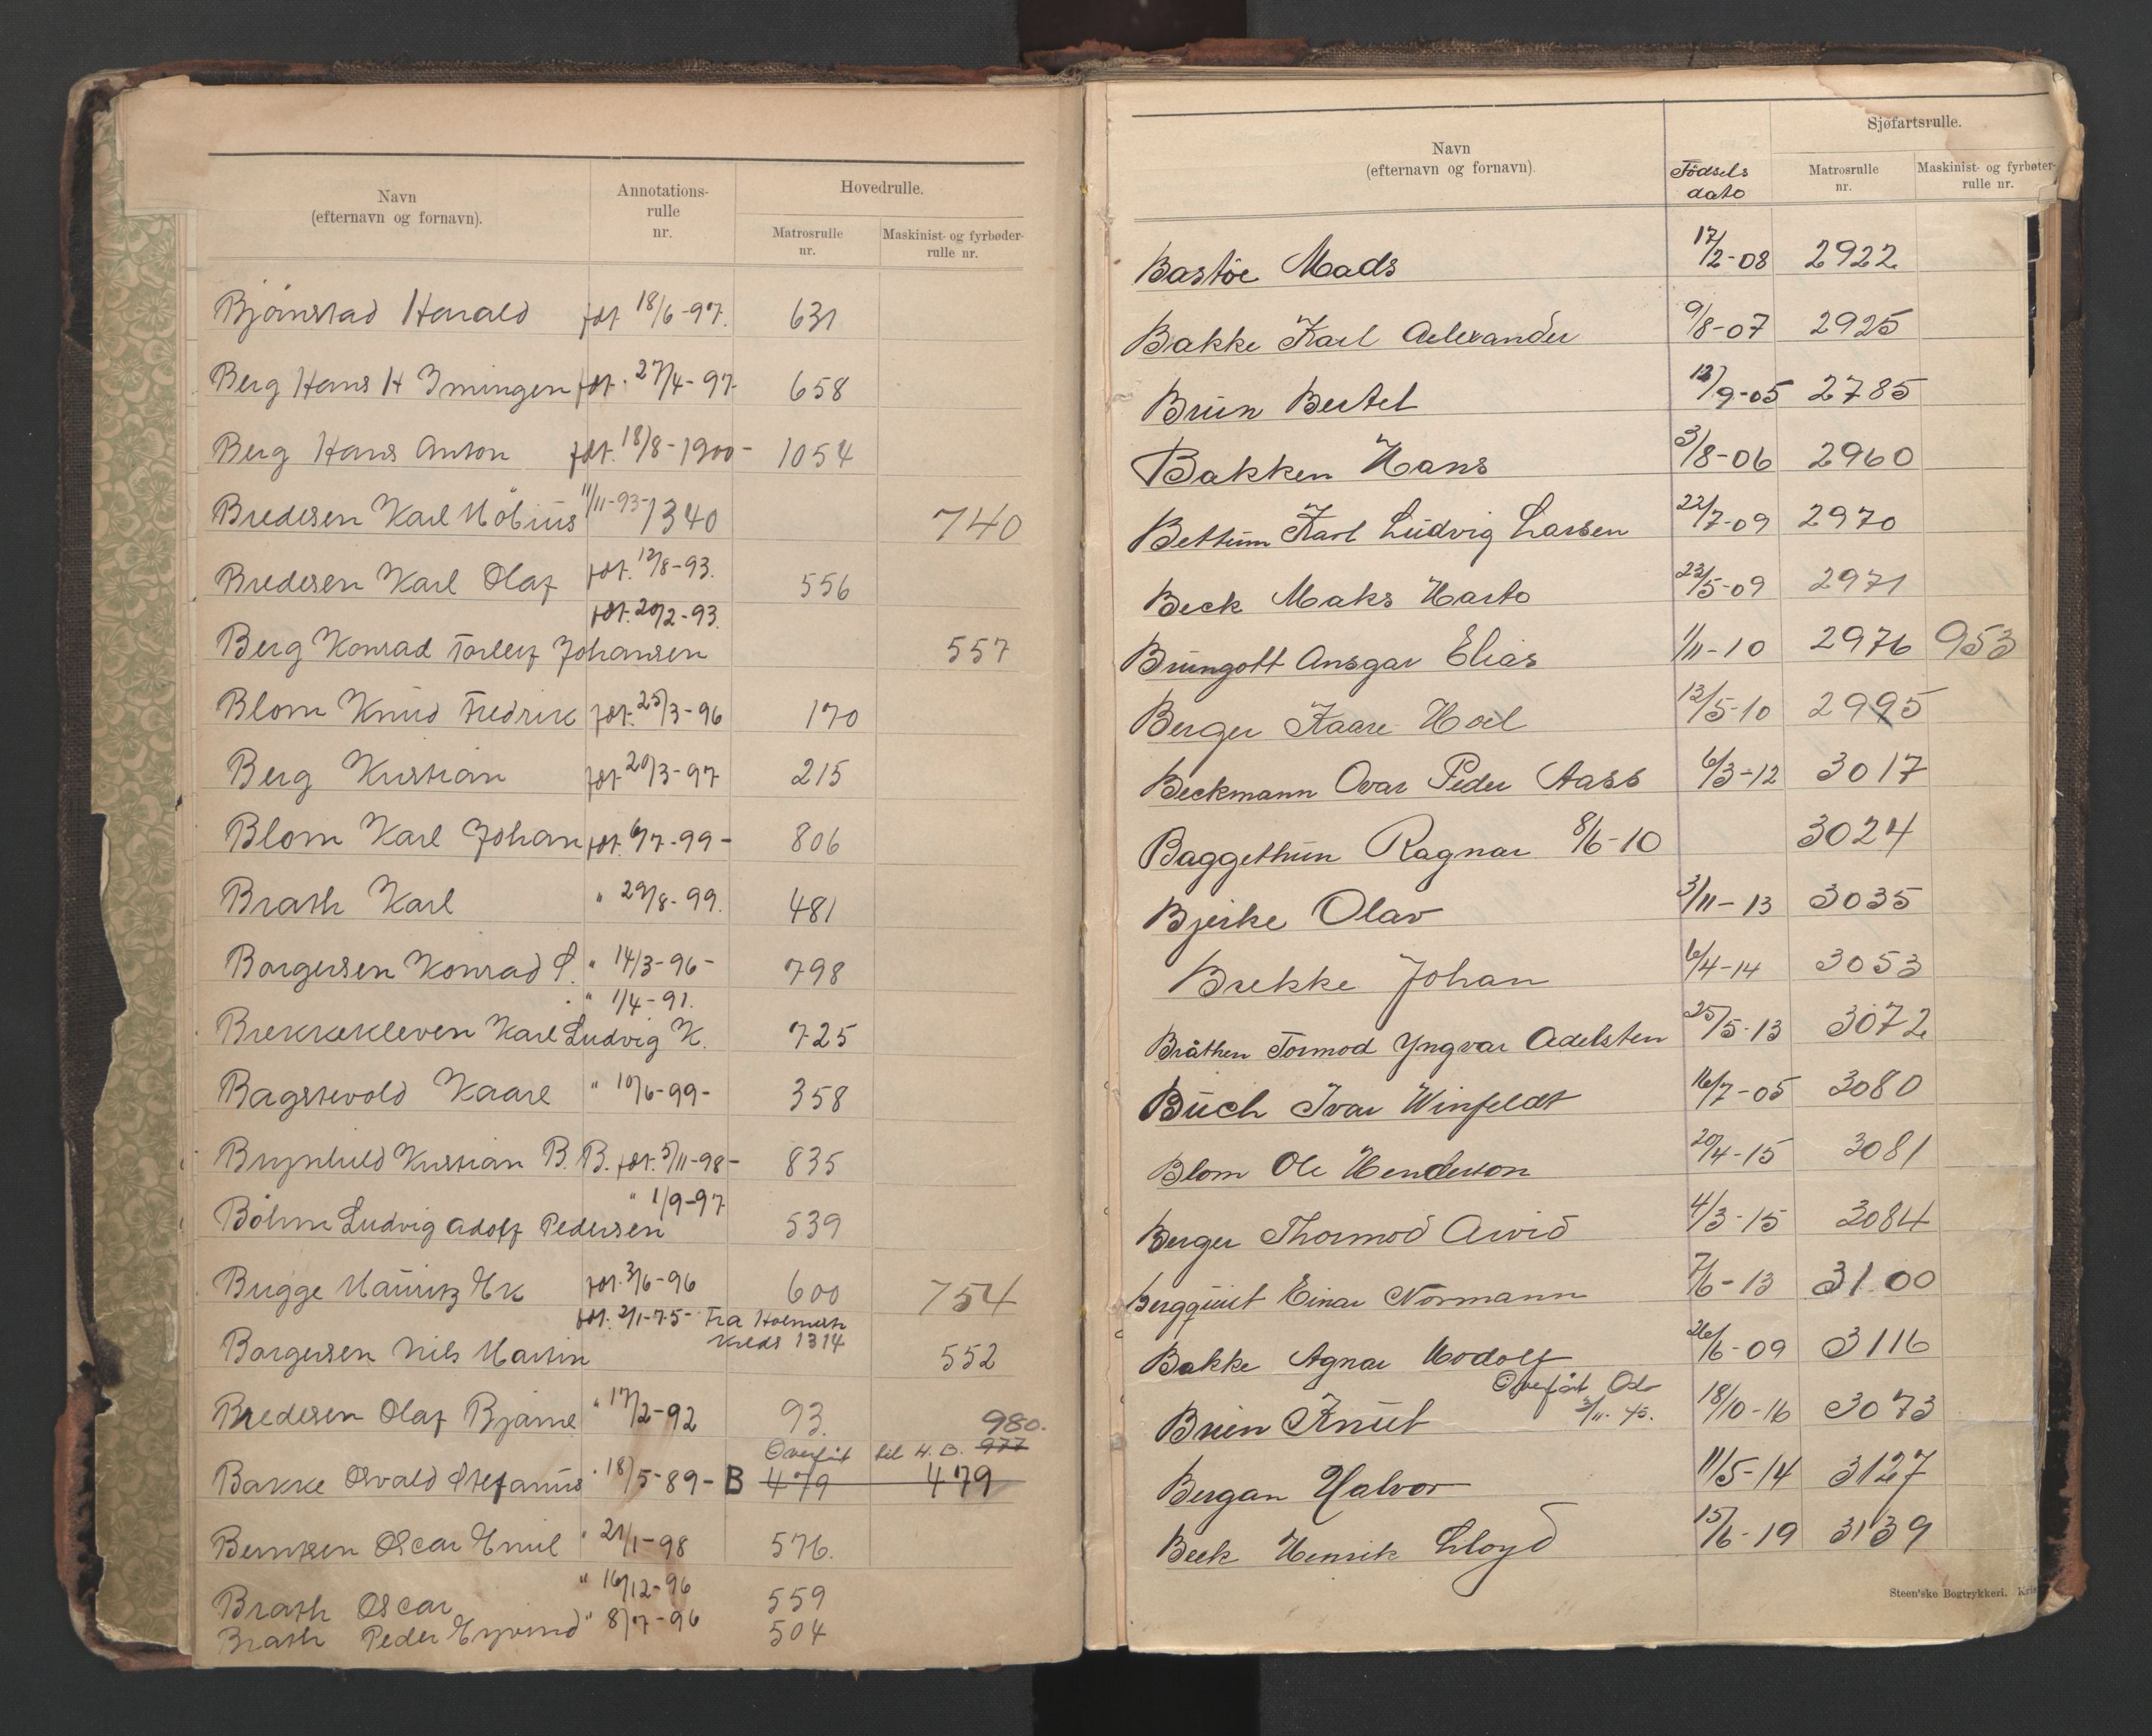 Navn
(efternavn og fornavn).
Annotations-
rulle
nr.
Hovedrulle.
Matrosrulle
nr.
Maskinist- og fyrbøder-
rulle nr.
Bjørnstad Harald fdt. 18/6-97. 631
Berg Hans H Imingen fdt. 27/4-97- 658
Berg Hans Anton fdt. 18/8-1900- 1054
Bredesen Karl Möbius 11/11-93- 1340 740
Bredesen Karl Olaf fdt. 12/8-93. 556
fdt. 20/2-93.
Berg Konrad Torleif Johansen 557
Blom Knud Fredrik fdt. 25/3-96 170
Berg Kristian fdt. 20/3-97 215
Blom Karl Johan fdt. 6/7-99- 806
Brath Karl " 29/8-99. 481
Borgersen Konrad S. " 14/3-96- 798
" 1/4-91.
Brekkekleven Karl Ludvig K. 725
Bagstevold Kaare " 10/6-99- 358
Brynhild Kristian B. B. fdt. 5/11-98- 835
" 1/9-97
Böhm Ludvig Adolf Pedersen 539
Bugge Mauritz Ek fdt. 3/6-96 600 754
fdt. 2/1-75- Fra Holmestr.
Kreds 1314
Borgersen Nils Martin 552
Bredesen Olaf Bjarne " 17/2-92 93. 980.
Overført til H. B. 977
Bakke Osvald Stefanus " 18/5-89- B 479 479
Berntsen Oscar Emil " 21/1-98 576.
Brath Oscar " 16/12-96 559
Brath Peder Eyvind " 8/7-96 504
Navn
(efternavn og fornavn).
Födsels
dato
Sjøfartsrulle.
Matrosrulle
nr.
Maskinist- og fyrbøter-
rulle nr.
Bastöe Mads 17/2-08 2922
Bakke Karl Aelexander 9/8-07 2925
Brun Bertel 12/9-05 2785
Bakken Hans 3/8-06 2960
Bettum Karl Ludvig Larsen 22/7-09 2970
Beck Maks Harto 23/5-09 2971
Brungott Ansgar Elias 1/11-10 2976 953
Berger Kaare Hoel 13/5-10 2995
Beckmann Ovar Peder Aass 6/3-12 3017
Baggethun Ragnar 8/6-10 3024
Bjerke Olav 3/11-13 3035
Brekke Johan 6/4-14 3053
Bråthen Tormod Yngvar Adelsten 25/5-13 3072
Buch Ivar Winfeldt 16/7-05 3080
Blom Ole Henderson 20/4-15 3081
Berger Thormod Arvid 4/3-15 3084
Bergquist Einar Normann 7/6-13 3100
Bakke Agnar Modolf 26/6-09 3116
Overført Oslo
3/11-45.
Bruun Knut 18/10-16 3073
Bergan Halvor 11/5-14 3127
Beck Henrik Lloyd 15/6-19 3139
Steen'ske Bogtrykkeri. Kris